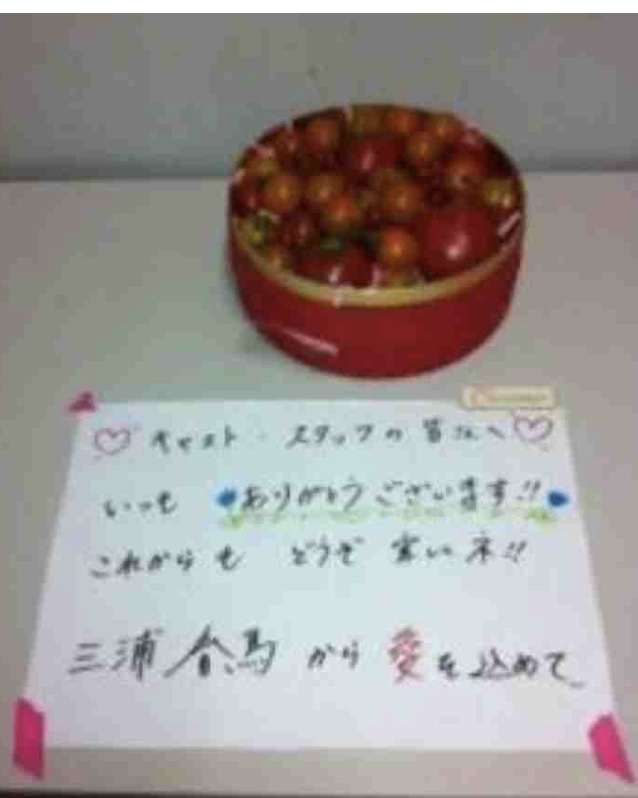 ♡ キャスト・スタッフの皆 へ ♡
いつも ありがとうございます!!
これからも どうぞ ネ!!
三浦春馬 から 愛を込めて